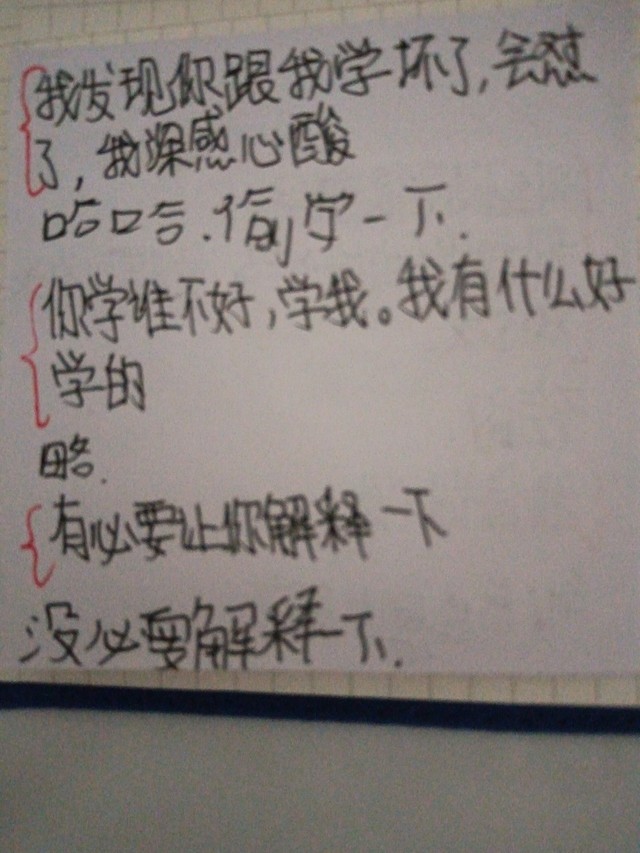 我发现你跟我学坏了,会怼
了,我深感心酸
哈哈.偷学一下.
你学谁不好,学我。我有什么好
学的
略.
有必要让你解释一下
没必要解释一下.